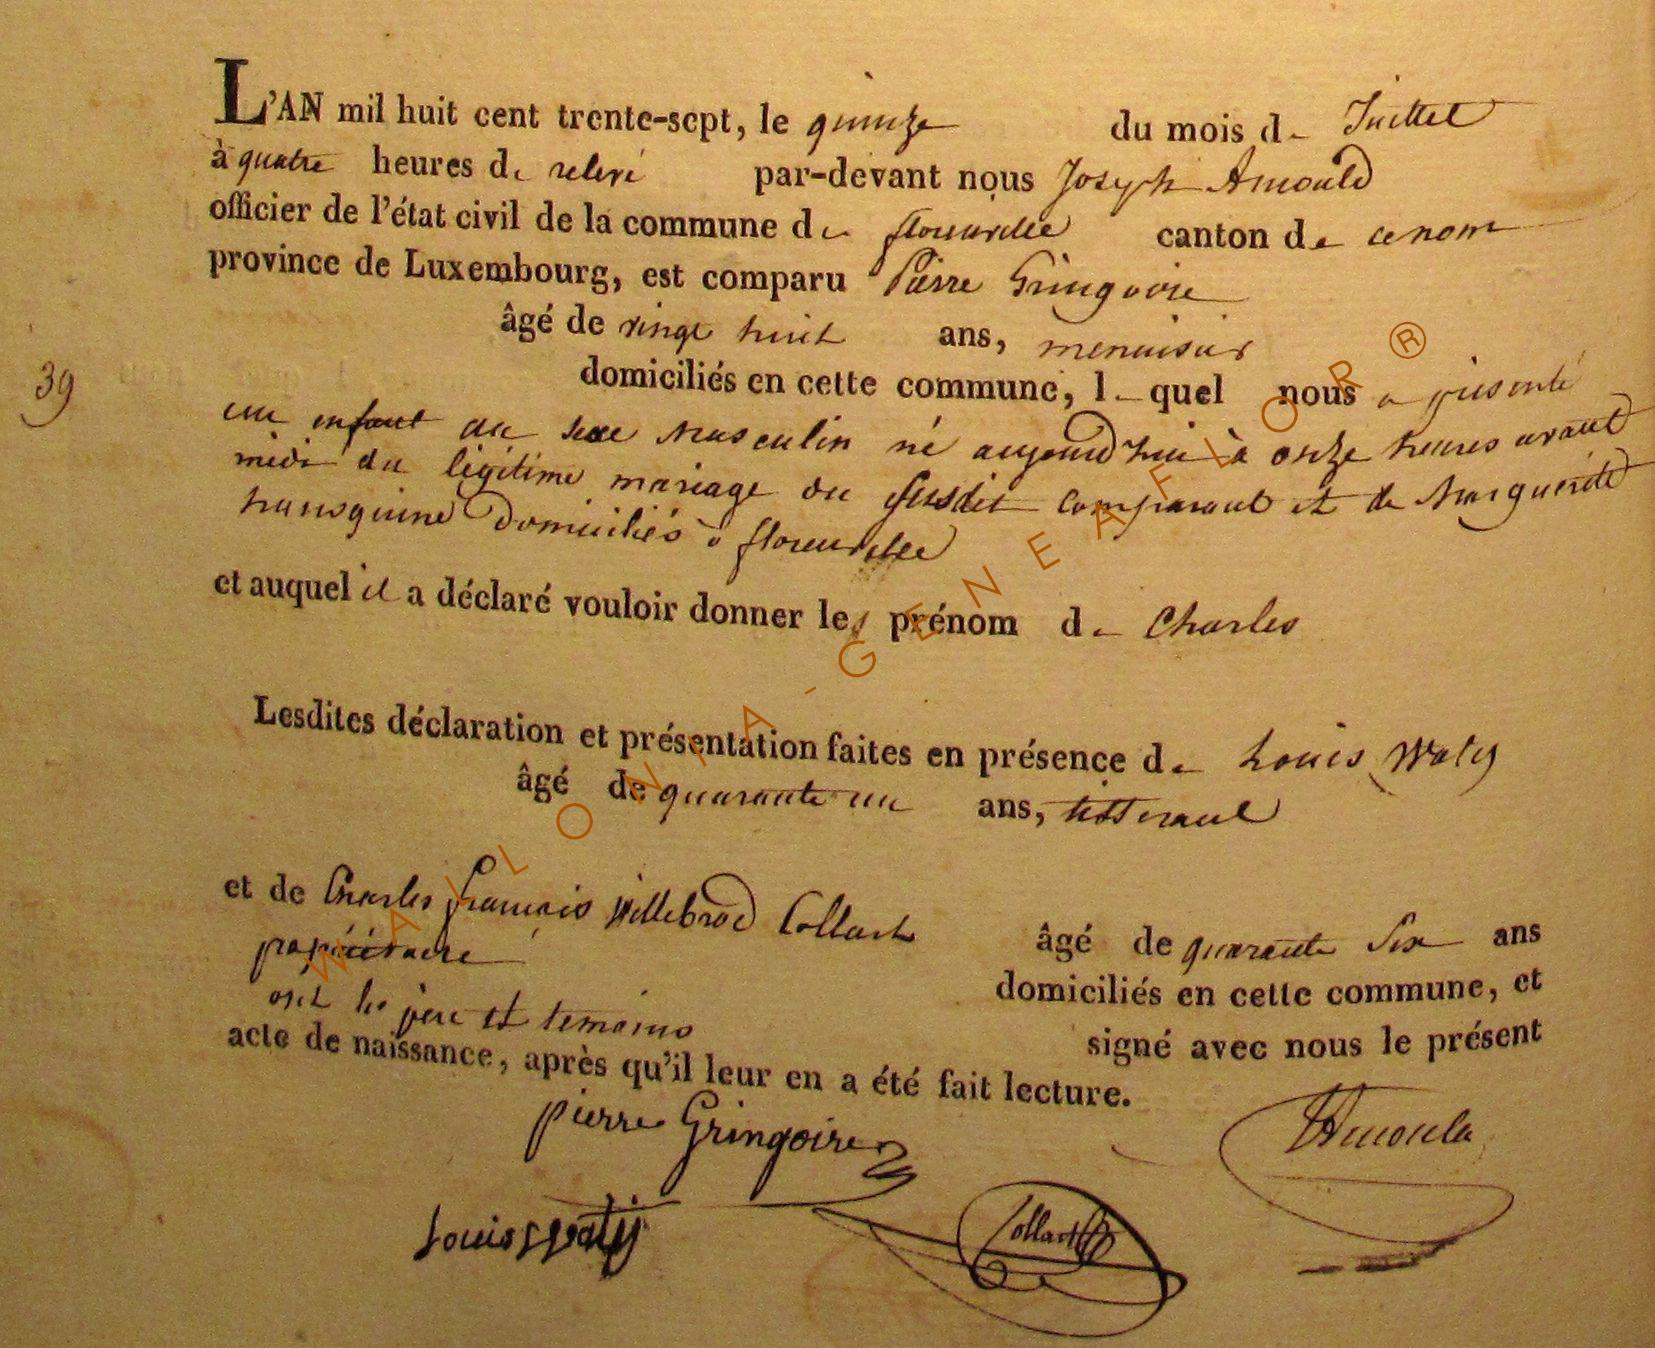 L'AN mil huit cent trente-sept, le quinze du mois de Juillet
à quatre heures de relevé par-devant nous Joseph Arnould
officier de l'état civil de la commune de florenville canton de ce nom
province de Luxembourg, est comparu Pierre Gringoire
âgé de vingt huit ans, menuisier
39
domiciliés en cette commune, lequel nous a présenté
un enfant du sexe masculin né aujourd'hui à onze heures avant
midi du légitime mariage du susdit comparant et de Marguerite
domiciliés à florenville
et auquel il a déclaré vouloir donner les prénom de Charles
Lesdites déclaration et présentation faites en présence de Louis Waty
âgé de quarante un ans, tisserand
et de Charles françois Willebrod Collart âgé de quarante six ans
propriétaire domiciliés en cette commune, et
ont les père et temoins signé avec nous le présent
acte de naissance, après qu'il leur en a été fait lecture.
pierre Gringoire
Arnould
Louis Waty
Collart
WALLONIA-GENEAFLOR ®